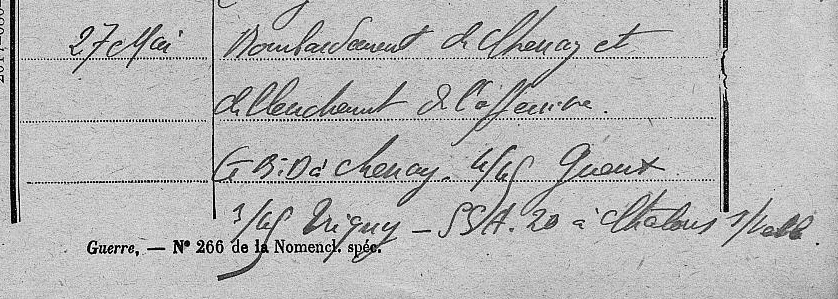 27 Mai Bombardement de Chenay et
déclenchement de l'offensive.
G B D à Chenay. 4/45 Gueux
3/45 Trigny - SSA. 20 à Chalons s/Vesle
Guerre. — N° 266 de la Nomencl. spéc.